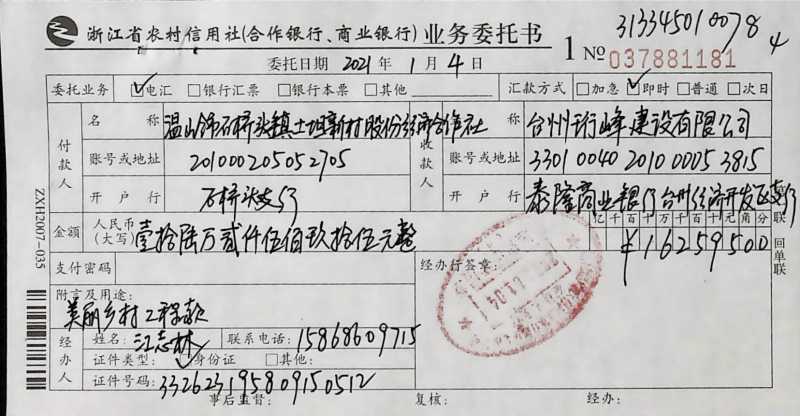 313345010078
4
浙江省农村信用社(合作银行、商业银行)业务委托书
1 №037881181
委托日期 2021年1月4日
委托业务 ☑电汇 □银行汇票 □银行本票 □其他 汇款方式 □加急 ☑即时 □普通 □次日
付款人 名称 温岭市石桥头镇上坦新村股份经济合作社
收款人 名称 台州珩峰建设有限公司
账号或地址 201000205052705
账号或地址 33010040201000053815
开户行 石桥头支行
开户行 泰隆商业银行台州经济开发区支行
金额 人民币(大写) 壹拾陆万贰仟伍佰玖拾伍元整
亿千百十万千百十元角分
¥16259500
回单联
支付密码
经办行签章:
附言及用途:
美丽乡村工程款
经办人 姓名: 江志林 联系电话: 15868609715
证件类型: ☑身份证 □其他:
证件号码: 332623195809150512
事后监督: 复核: 经办:
ZXH2007-035